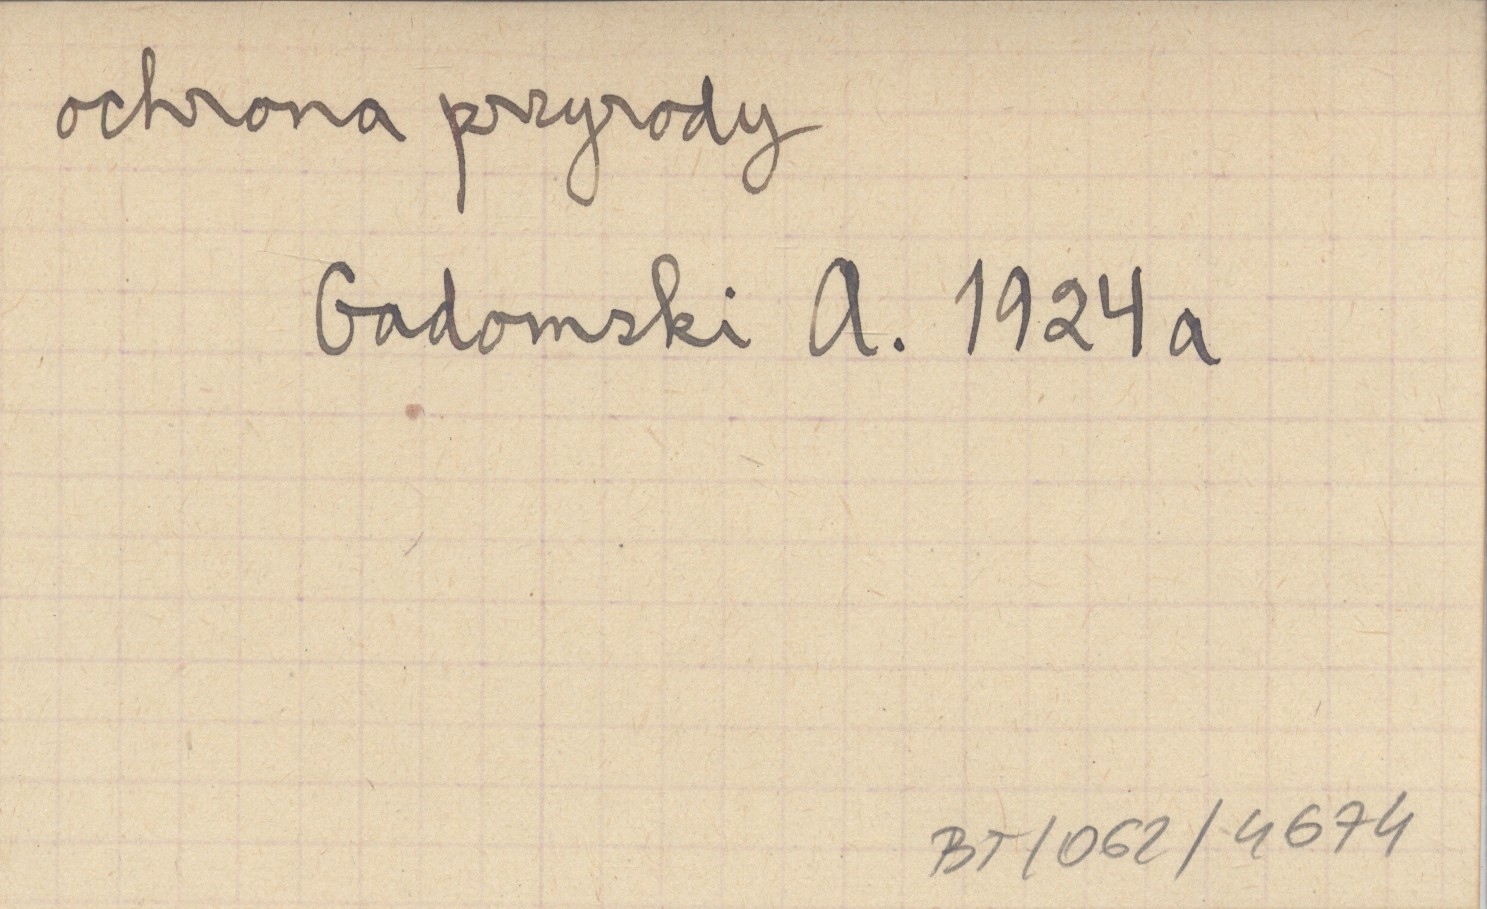 ochrona przyrody
Gadomski A. 1924a
BT/062/4674